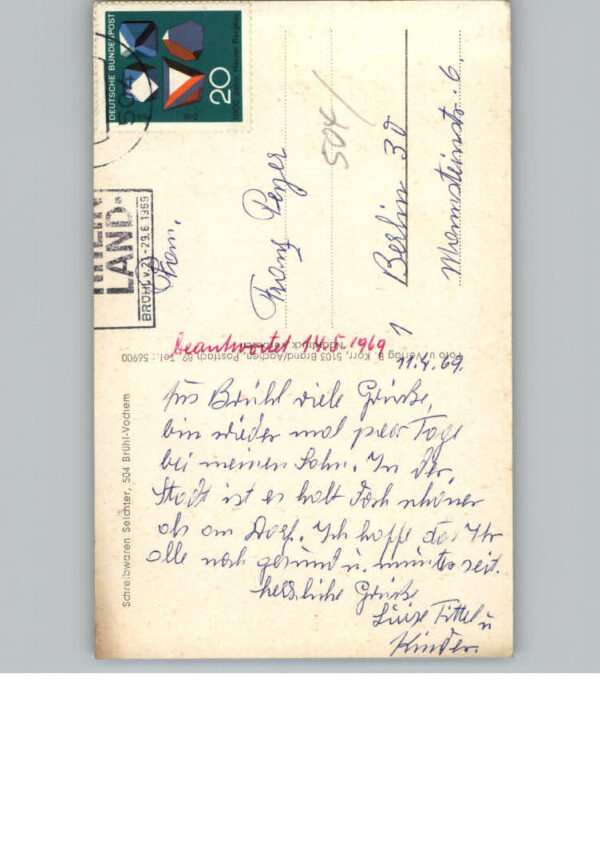 DEUTSCHE BUNDESPOST
20
LAND
BRÜHL v. 21.-29.6.1969
504
Fam.
Franz Peyer
504/
1 Berlin 30
beantwortet 14.5.1969
Foto u. Verlag B. Korr, 5103 Brand/Aachen, Postfach 89, Tel.: 56900
Schreibwaren Seichter, 504 Brühl-Vochem
11.4.69.
Aus Brühl viele Grüße,
bin wieder mal paar Tage
bei meinen Sohn. In der
Stadt ist es halt doch schöner
als am Dorf. Ich hoffe das Ihr
alle noch gesund u. munter seit.
herzliche Grüße
Luise Tittel u
Kinder.